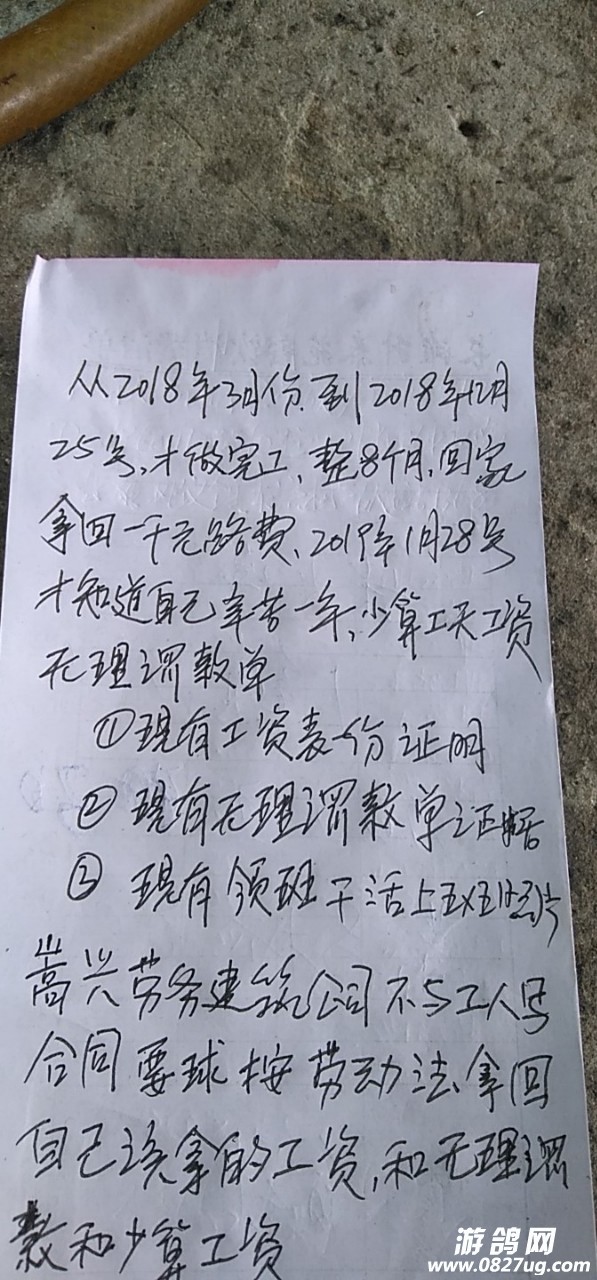 从2018年3月份到2018年12月
25号,才做完工、整8个月,回家
拿回一千元路费、2019年1月28号
才知道自己辛苦一年,少算工天工资
无理罚款单
①现有工资表份证明
②现有无理罚款单证据
③现有领班干活上
嵩兴劳务建筑公司不与工人写
合同要球按劳动法拿回
自己该拿的工资,和无理罚
款和少算工资
游鸽网
www.0827ug.com